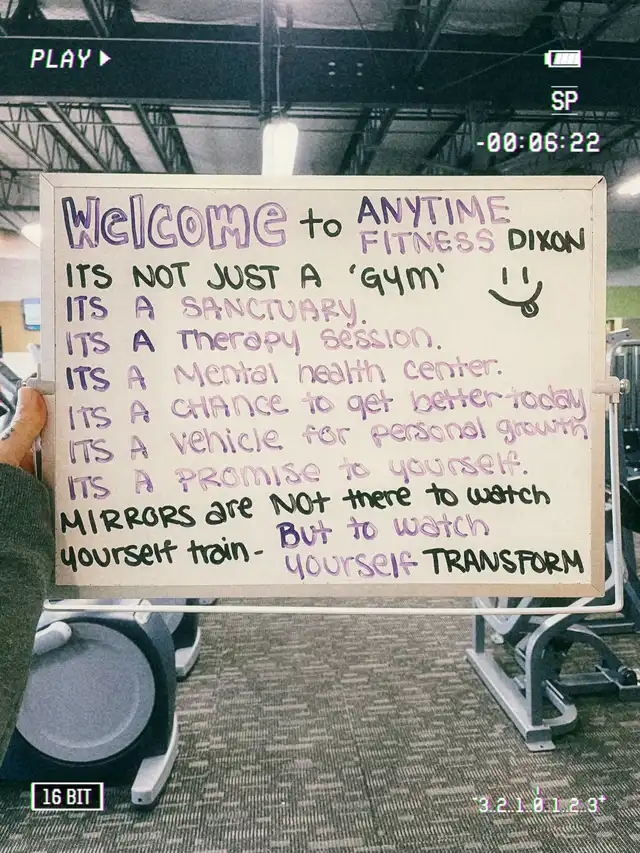 PLAY
SP
-00:06:22
Welcome to ANYTIME
FITNESS DIXON
ITS NOT JUST A 'GYM'
ITS A SANCTUARY.
ITS A Therapy session.
ITS A Mental health center.
ITS A CHANCE to get better today
ITS A vehicle for personal growth
ITS A PROMISE to yourself.
MIRRORS are NOT there to watch
yourself train- But to watch
yourself TRANSFORM
16 BIT
-3.2.1.0.1.2.3+